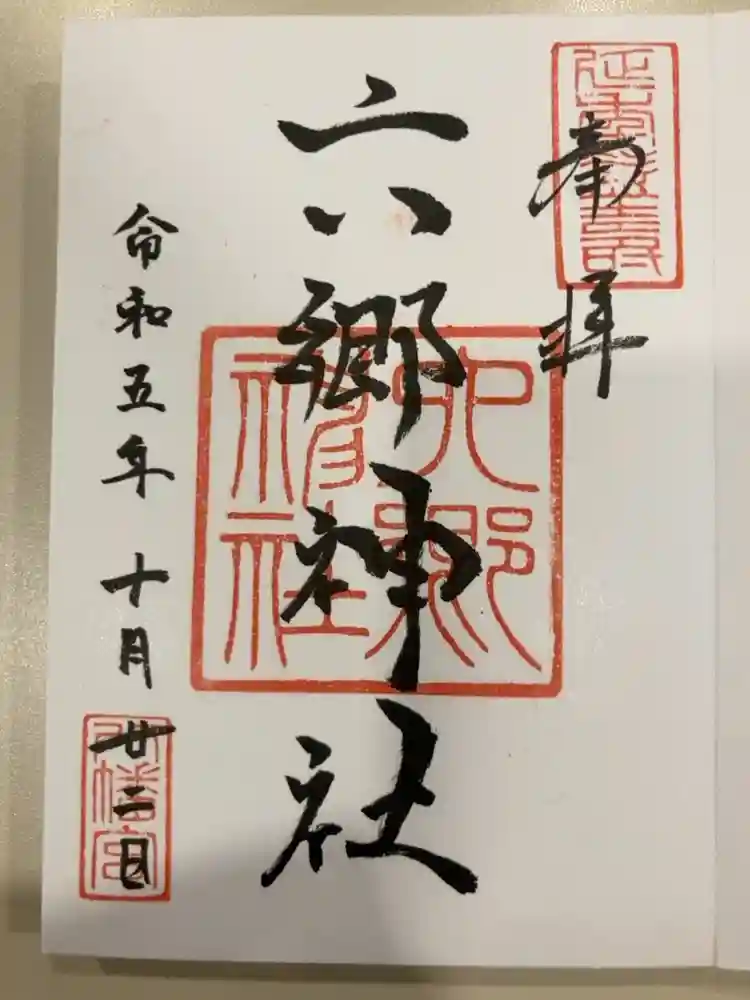 奉拝
六郷神社
六郷神社
令和五年十月廿二日
八幡宮